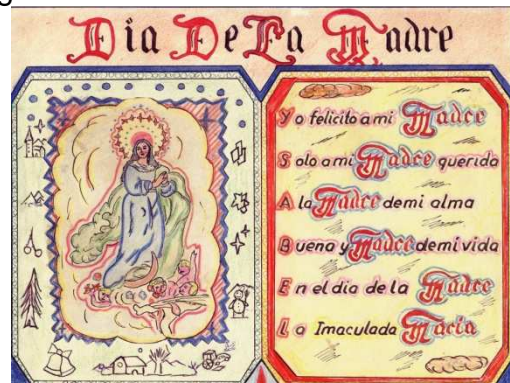 Dia De La Madre
Yo felicito a mi Madre
Solo a mi Madre querida
A la Madre de mi alma
Buena y Madre de mi vida
En el dia de la Madre
La Imaculada Maria